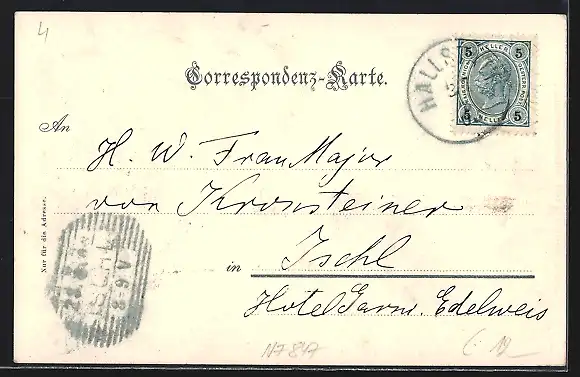 4
Correspondenz-Karte.
HALLS
5 HELLER 5
5 HELLER 5
An
H. W. Frau Major
von Kronsteiner
in Ischl
Hotel Garni. Edelweis
Nur für die Adresse.
ISCHL
N7847